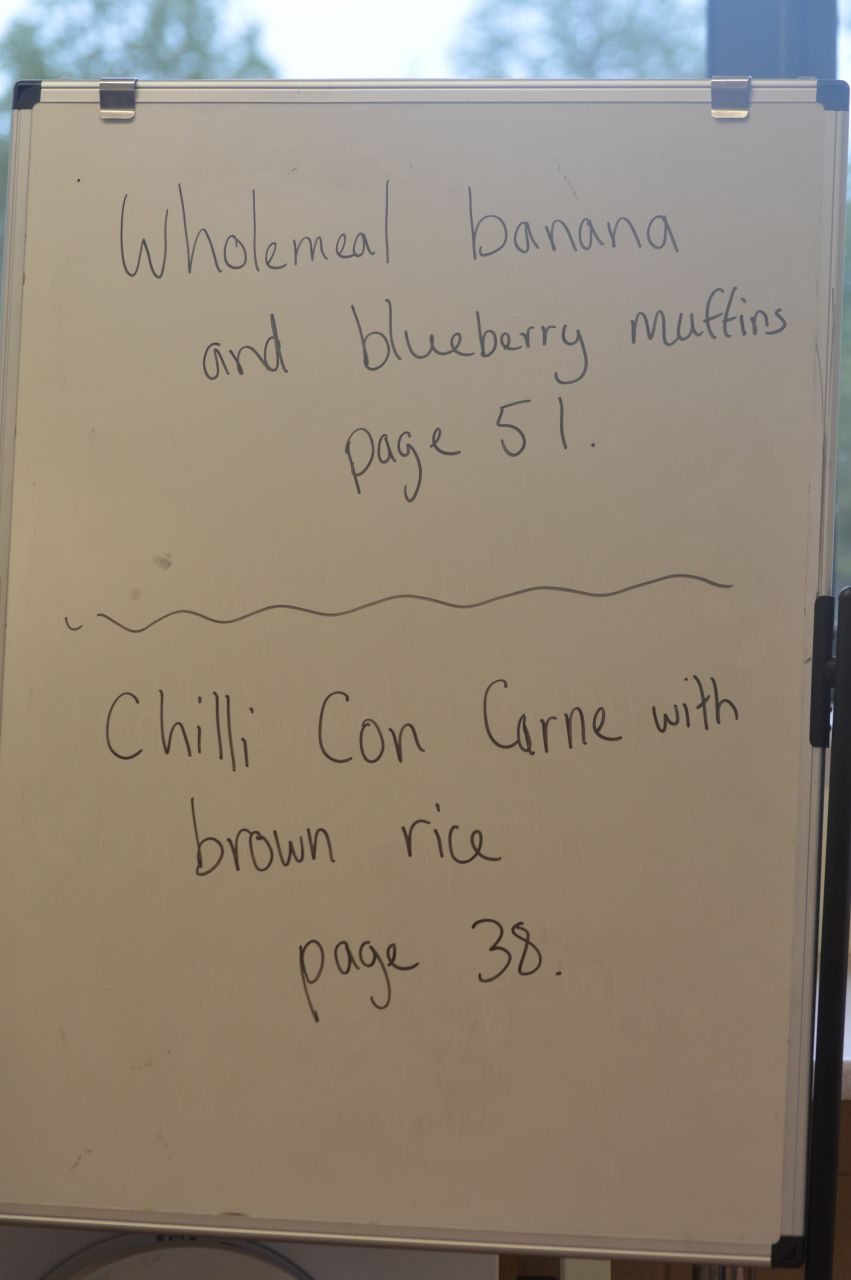 Wholemeal banana
and blueberry muffins
page 51.
Chilli Con Carne with
brown rice
page 38.